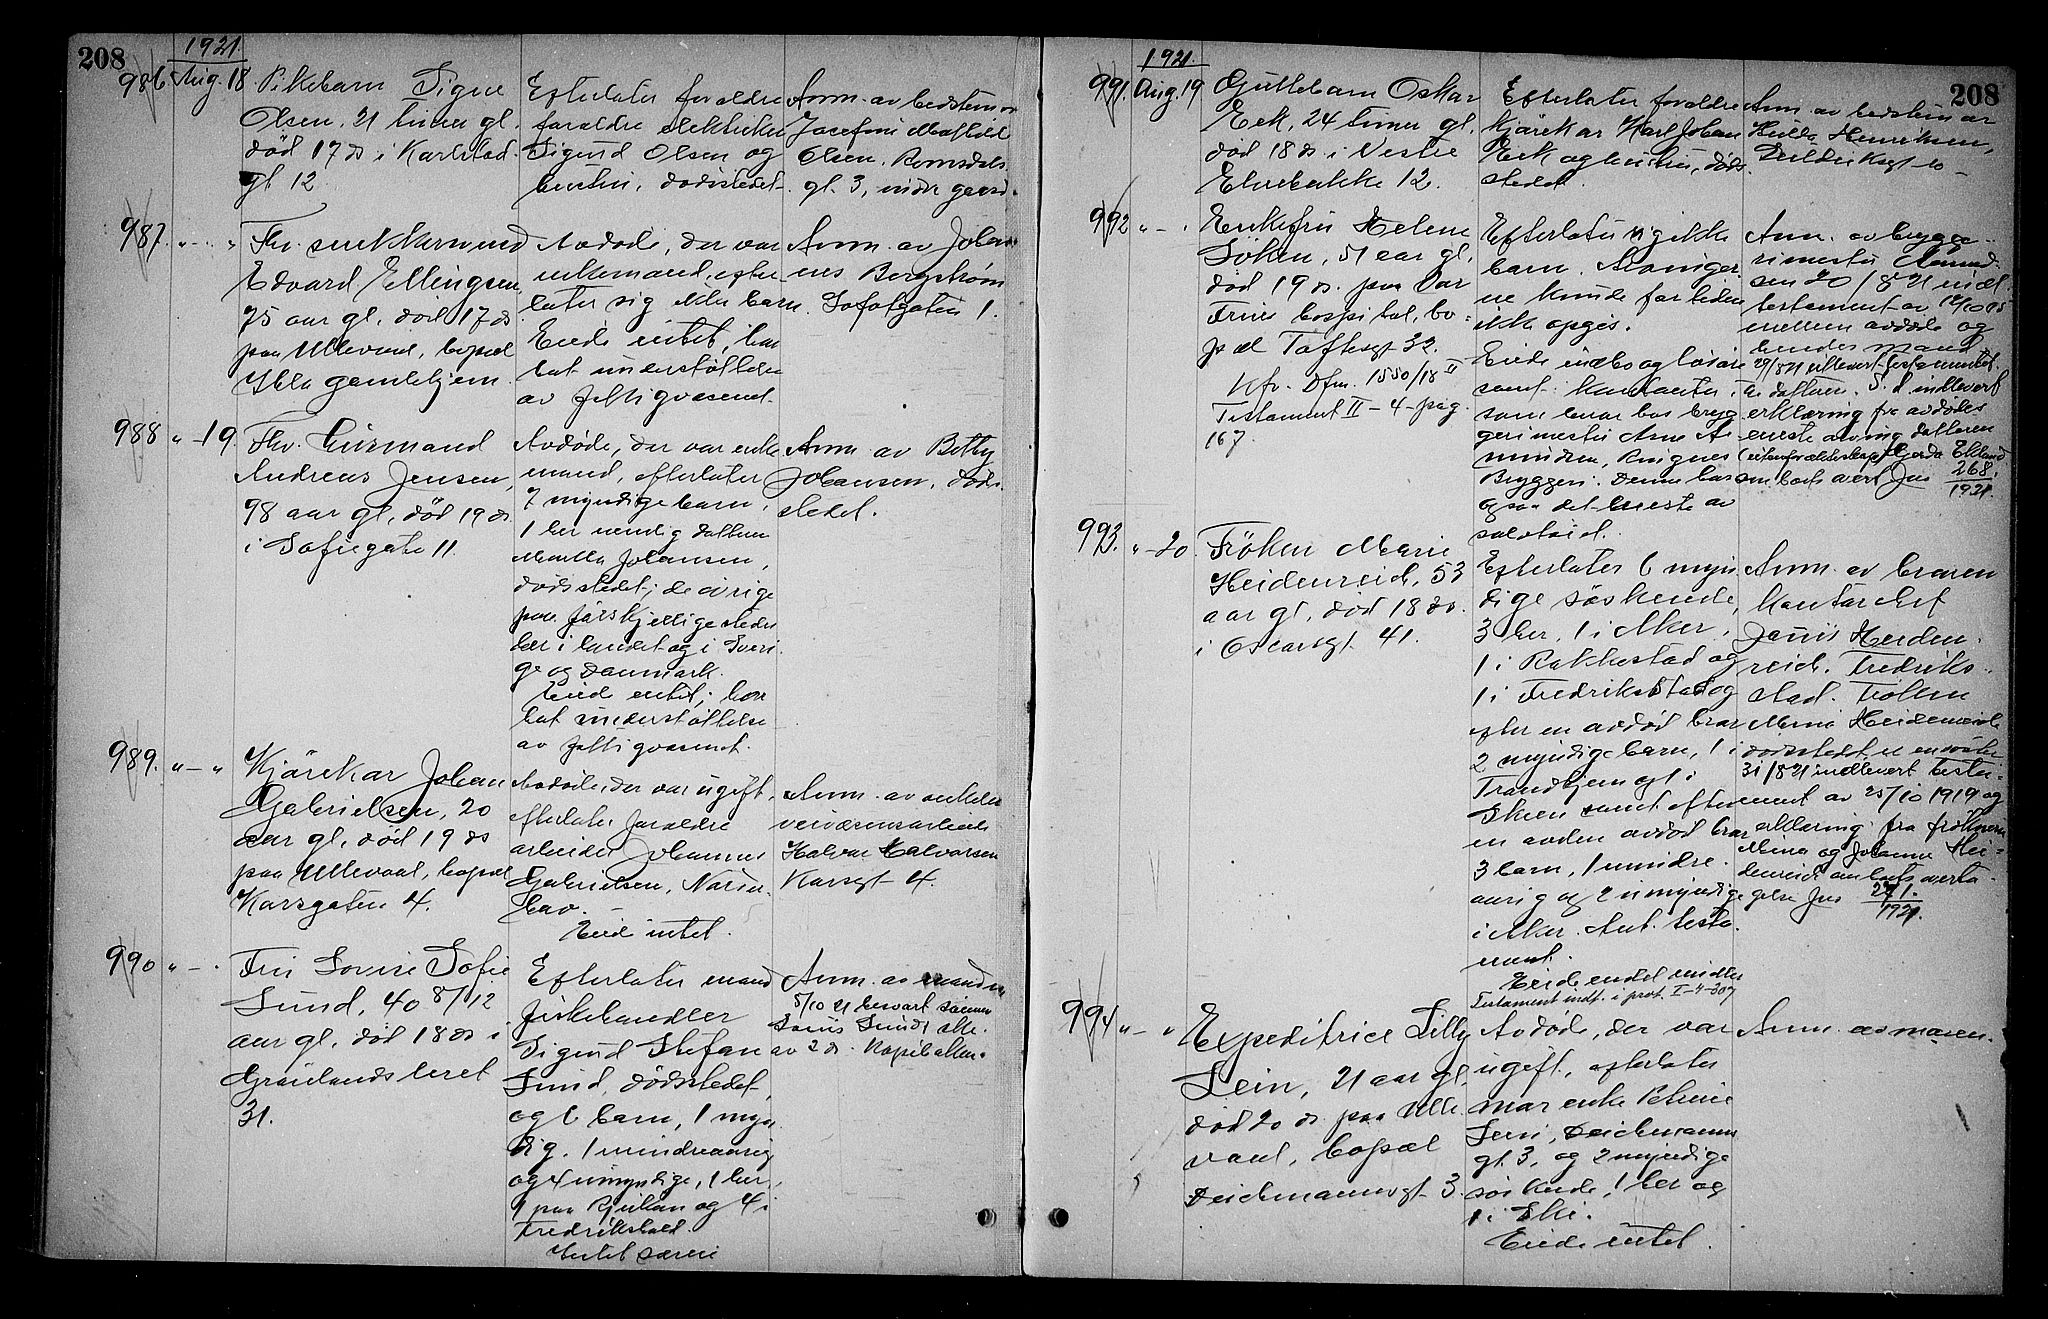 208
1921.
986 Aug. 18. Pikebarn Signe
Olsen, 21 timer gl.
död 17 ds i Karlstad.
gt 12
Efterlater foraldre
foraldre elektriker
Sigurd Olsen og
hustru, dödsstedet.
Anm. av bedstemor
Josefine Mathilde
Olsen, Romsdals
gt. 3, indre gaard.
987. " - " Fhv. snekkersvend
Edvard Ellingsen
75 aar gl, död 17 ds
paa Ullevaal, bopæl
Ila gamlehjem.
Avdøde, der var
enkemand, efter-
later sig ikke barn.
Eiede intet, har
hat understöttelse
av fattigvæsenet.
Anm. av Johan
nes Bergström
Sofagaten 1.
988 " - 19. Fhv. Murmand
Andreas Jensen,
98 aar gl, död 19 ds
i Sofiegate 11.
Avdöde, der var enke
mand, efterlater
7 myndige barn,
1 her nemlig datteren
Johansen,
dödsstedet; de övrige
paa forskjellige steder
her i landet og i Sveri
ge og Danmark.
Eied intet; har
hat understöttelse
av fattigvæsenet.
Anm. av Betty
Johansen, döds-
stedet.
989. " - " Kjörekar Johan
Gabrielsen, 20
aar gl, död 19 ds
paa Ullevaal, bopæl
Karsgaten 4.
Avdöde, der var ugift,
efterlater foraldre
arbeider Johannes
Gabrielsen,
Eied intet.
Anm. av onkelen
Halvor Halvorsen
Karsgt 4.
990 " - " Fru Lovise Sofie
Lund, 40 8/12
aar gl, död 18 ds i
Grönlandsleret
31.
Efterlater mand
fiskehandler
Sigurd Stefan
Lund, dödsstedet,
og 6 barn, 1 myn
dig, 1 mindreaarig
og 4 umyndige, 1 her,
1 paa Rjukan og 4 i
Fredrikshald.
Intet særeie
Anm. av manden
5/10 21 besvart
Lunds skr.
av 2 ds. Kopiboken.
208
1921.
991. Aug. 19 Guttebarn Oskar
Eek, 24 timer gl.
död 18 ds i Nedre
Elvebakke 12.
Efterlater foraldre
kjörekar Karl Johan
Eek og hustru, döds-
stedet.
Anm. av bedstemor
Hulda Henriksen,
992 " - " Enkefru Helene
Söken, 51 aar gl,
död 19 ds. paa Vor
Frues hospital, bo-
pæl Toftesgt 32.
Kfr. Dfm. 1550/18 II
Testament II - 4 - pag.
167.
Efterlater sig ikke
barn. Arvinger
ne kunde forleden
ikke opgis.
Eiede indbo og lösöre
samt kontanter
som beror hos bryg
gerimester Arne A
mundsen, Ringnes
Bryggeri. Denne har
ogsaa det meste av
sölvtöiet.
Anm. av brygge-
rimester Amund-
sen 20/8 21 indl.
testament av 12/10 05
mellem avdöde og
hendes mand
29/8 21 utlevert testamentet
til datteren. S. d indlevert
erklæring fra avdödes
eneste arving datteren
Gerda Eklund
om boets overt Jur 268
1921.
993. " - 20. Fröken Marie
Heidenreich, 53
aar gl, död 18 ds.
i Oscarsgt. 41.
Efterlater 6 myn
dige söskende,
3 her, 1 i Aker,
1 i Rakkestad og
1 i Fredrikstad og
efter en avdöd bror
2 myndige barn, 1 i
Trondhjem og 1 i
Skien samt efter
en anden avdöd bror
3 barn, 1 mindre-
aarig og 2 umyndige
i Aker. Ant. testa
ment.
Eiede endel midler
Testament indt. i prot. I-4-307
Anm. av broren
kontorchef
Jonis Heiden-
reich, Fredrik-
stad. Fröken
Mina Heidenreich
dödsstedet er
31/8 21 indlevert testa-
ment av 25/10 1919 og
erklæring fra fröknene
Mina og Johanne Hei-
denreich om boets overta-
gelse Jur 271.
1921.
994 " - " Expeditrice Lilly
Lein, 21 aar gl,
död 20 ds paa Ulle
vaal, bopæl
Deichmannsgt 3.
Avdöde, der var
ugift, efterlater
mor enke Petrine
Lein, Deichmanns
gt. 3, og 2 myndige
söskende, 1 her og
1 i Ski.
Eiede intet.
Anm. av moren.